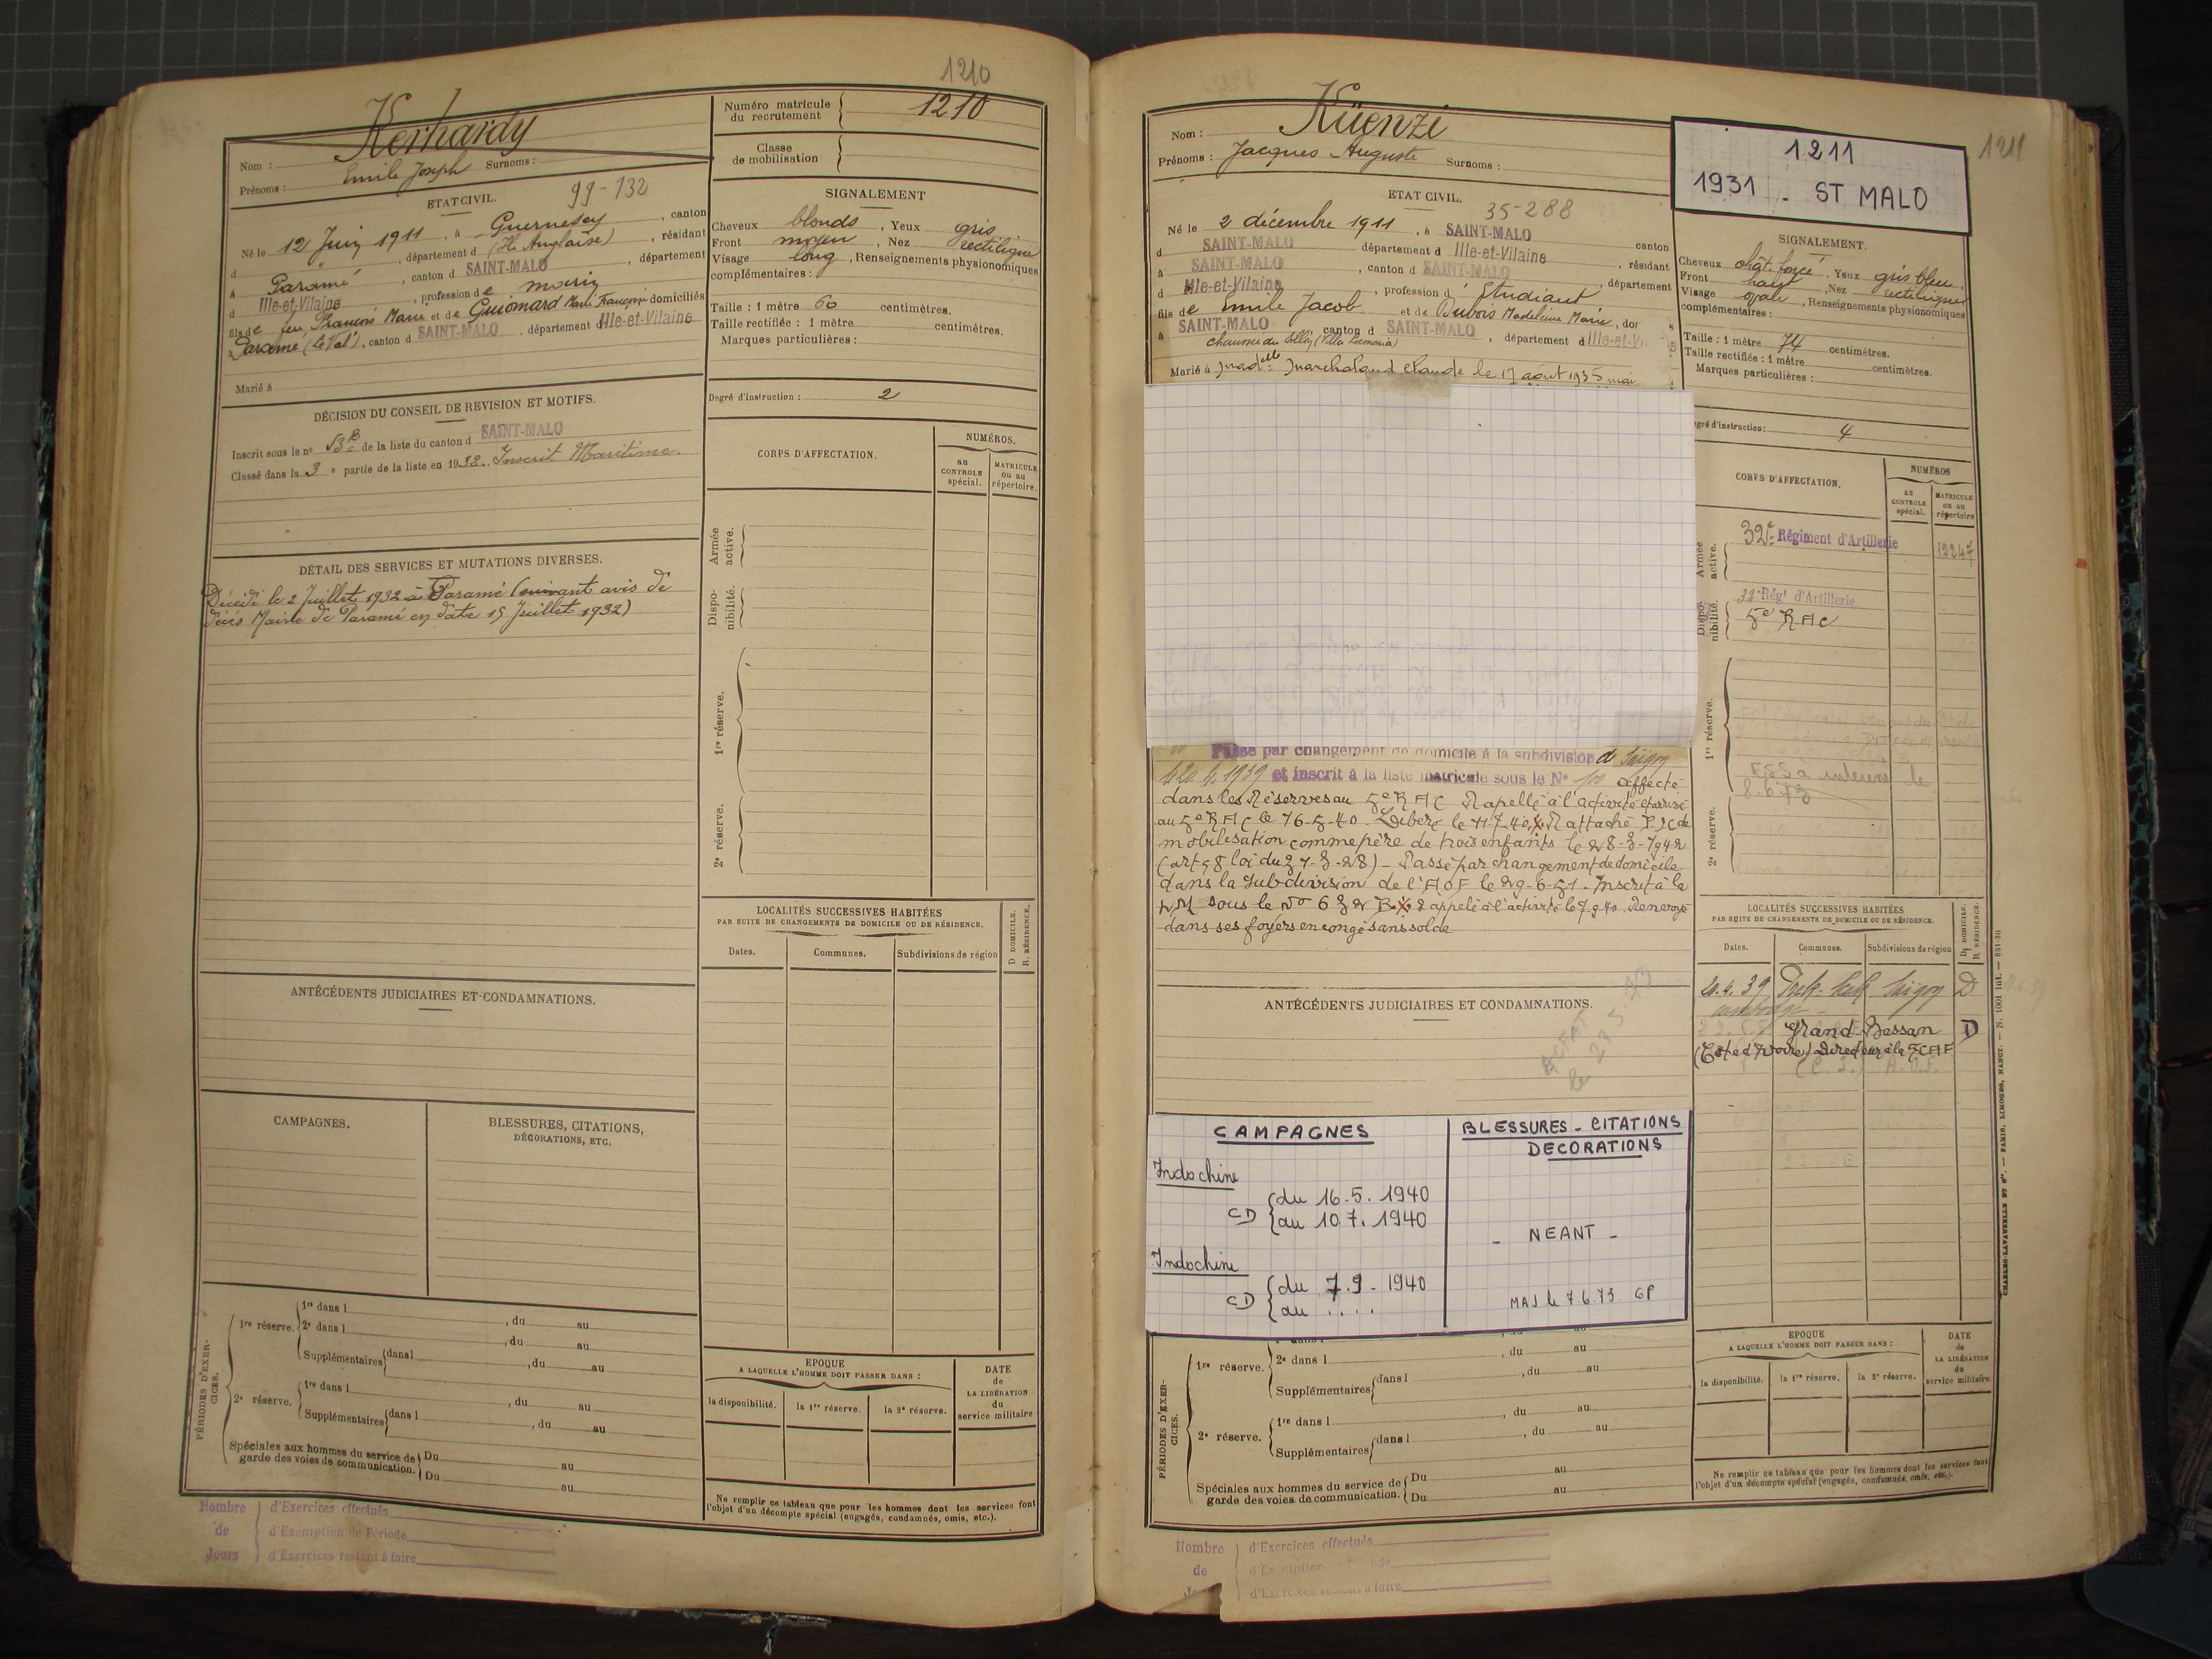 1210
Kerhardy
Nom :
Prénoms : Emile Joseph Surnoms :
Numéro matricule du recrutement 1210
Classe de mobilisation
ETAT CIVIL. 99-132
Né le 12 Juin 1911, à Guernesey, canton
d département d (Ile Anglaise), résidant
à Paramé, canton d SAINT-MALO, département
d Ille-et-Vilaine, profession de marin
fils de feu François Marie et de Guiomard Marie Françoise domiciliés
à Paramé (le Val), canton d SAINT-MALO, département d Ille-et-Vilaine
Marié à
SIGNALEMENT
Cheveux blonds, Yeux gris
Front moyen, Nez rectiligne
Visage long, Renseignements physionomiques
complémentaires :
Taille : 1 mètre 60 centimètres.
Taille rectifiée : 1 mètre centimètres.
Marques particulières :
Degré d'instruction : 2
DÉCISION DU CONSEIL DE REVISION ET MOTIFS.
Inscrit sous le n° 53 B de la liste du canton d SAINT-MALO
Classé dans la 3e partie de la liste en 1932. Inscrit Maritime.
DÉTAIL DES SERVICES ET MUTATIONS DIVERSES.
Décédé le 2 Juillet 1932 à Paramé (suivant avis de
décès Mairie de Paramé en date 15 Juillet 1932)
ANTÉCÉDENTS JUDICIAIRES ET CONDAMNATIONS.
CAMPAGNES.
BLESSURES, CITATIONS,
DÉCORATIONS, ETC.
CORPS D'AFFECTATION.
NUMÉROS.
au CONTROLE spécial.
MATRICULE ou au répertoire.
Armée active.
Disponibilité.
1re réserve.
2e réserve.
LOCALITÉS SUCCESSIVES HABITÉES
PAR SUITE DE CHANGEMENTS DE DOMICILE OU DE RÉSIDENCE.
D DOMICILE. R. RÉSIDENCE.
Dates.
Communes.
Subdivisions de région
PÉRIODES D'EXERCICES.
1re réserve.
1re dans l , du au
2e dans l , du au
Supplémentaires dans l , du au
2e réserve.
1re dans l , du au
Supplémentaires dans l , du au
Spéciales aux hommes du service de garde des voies de communication.
Du au
Du au
EPOQUE
A LAQUELLE L'HOMME DOIT PASSER DANS :
la disponibilité.
la 1re réserve.
la 2e réserve.
DATE de LA LIBÉRATION du service militaire
Ne remplir ce tableau que pour les hommes dont les services font
l'objet d'un décompte spécial (engagés, condamnés, omis, etc.).
Nombre de Jours
d'Exercices effectués
d'Exemption de Période
d'Exercices restant à faire
Nom : Küenzi
Prénoms : Jacques Auguste Surnoms :
1211
1931 - ST MALO
1211
ETAT CIVIL. 35-288
Né le 2 décembre 1911, à SAINT-MALO canton
d SAINT-MALO département d Ille-et-Vilaine, résidant
à SAINT-MALO, canton d SAINT-MALO, département
d Ille-et-Vilaine, profession d' Etudiant
fils de Emile Jacob et de Dubois Madeleine Marie, do
à SAINT-MALO, canton d SAINT-MALO, département d Ille-et-V
chaussée du Sillon
Marié à Madelle Marchaland Claude le 17 août 1935
SIGNALEMENT.
Cheveux chât. foncé, Yeux gris bleu
Front haut, Nez rectiligne
Visage ovale, Renseignements physionomiques
complémentaires :
Taille : 1 mètre 74 centimètres.
Taille rectifiée : 1 mètre centimètres.
Marques particulières :
gré d'instruction : 4
CORPS D'AFFECTATION.
NUMÉROS
au CONTROLE spécial.
MATRICULE ou au répertoire
Armée active.
32e Régiment d'Artillerie
Disponibilité.
32e Régt d'Artillerie
5e RAC
1re réserve.
2e réserve.
Passé par changement de domicile à la subdivision de Saigon
le 20.4.1939 et inscrit à la liste matricule sous le N° affecté
dans les Réserves au 5e RAC Rapellé à l'activité et arrivé
au 5e RAC le 16-5-40. Libéré le 11-7-40 x Rattaché
mobilisation comme père de trois enfants le 28-3-1942
(art 58 loi du 31-3-28) - Passé par changement de domicile
dans la Subdivision de l'AOF le 29-6-51. Inscrit à la
LM sous le N° 632 B. x Rappelé à l'activité le 7.9.40. Renvoyé
dans ses foyers en congé sans solde
ANTÉCÉDENTS JUDICIAIRES ET CONDAMNATIONS.
LOCALITÉS SUCCESSIVES HABITÉES
PAR SUITE DE CHANGEMENTS DE DOMICILE OU DE RÉSIDENCE.
D DOMICILE. R. RÉSIDENCE.
Dates.
Communes.
Subdivisions de région
20.4.39 Saigon D
Grand-Bassan D
(Côte d'Ivoire) Directeur à la
CAMPAGNES
Indochine
CD du 16-5. 1940
au 10.7. 1940
Indochine
CD du 7.9 - 1940
au ....
BLESSURES - CITATIONS
DECORATIONS
- NEANT -
MAJ le 7.6.73 GP
PÉRIODES D'EXERCICES.
1re réserve.
2e dans l , du au
Supplémentaires dans l , du au
2e réserve.
1re dans l , du au
Supplémentaires dans l , du au
Spéciales aux hommes du service de garde des voies de communication.
Du au
Du au
EPOQUE
A LAQUELLE L'HOMME DOIT PASSER DANS :
la disponibilité.
la 1re réserve.
la 2e réserve.
DATE de LA LIBÉRATION du service militaire.
Ne remplir ce tableau que pour les hommes dont les services font
l'objet d'un décompte spécial (engagés, condamnés, omis, etc.).
Nombre de
d'Exercices effectués
d'Exercices restant à faire
CHARLES-LAVAUZELLE ET Cie. — PARIS, LIMOGES, NANCY. — N. 1001 int. — 831-30